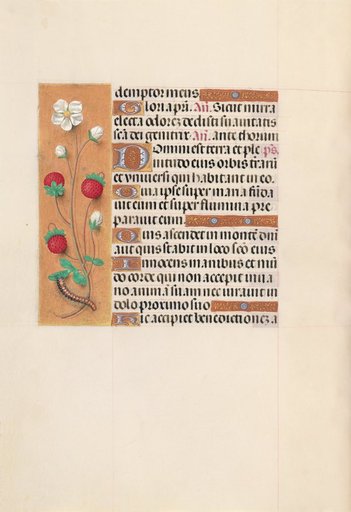 demptor meus
Gloria pr̃i. Añ. Sicut mirra
electa odorẽ dedisti suavitatis
scã dei genitrix. Añ. ante thorum
Domini est terra et ple p̃s.
nitudo eius orbis terraꝝ
et universi qui habitant in eo.
Quia ipse super maria fũda
vit eum et super flumina pre
paravit eum.
Quis ascendet in montẽ dñi
aut quis stabit in loco scõ eius
Innocens manibus et mũ
do corde qui non accepit in vã
no animã suam nec iuravit in
dolo proximo suo
Hic accipiet benedictionẽ a